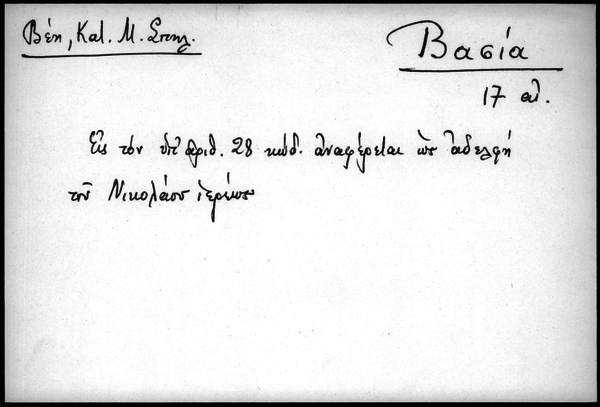 Βέη, Κατ. Μ. Σπηλ.
Βασία
17 αἰ.
Εἰς τὸν ὑπ' ἀριθ. 28 κώδ. ἀναφέρεται ὡς ἀδελφή
τοῦ Νικολάου ἱερέως